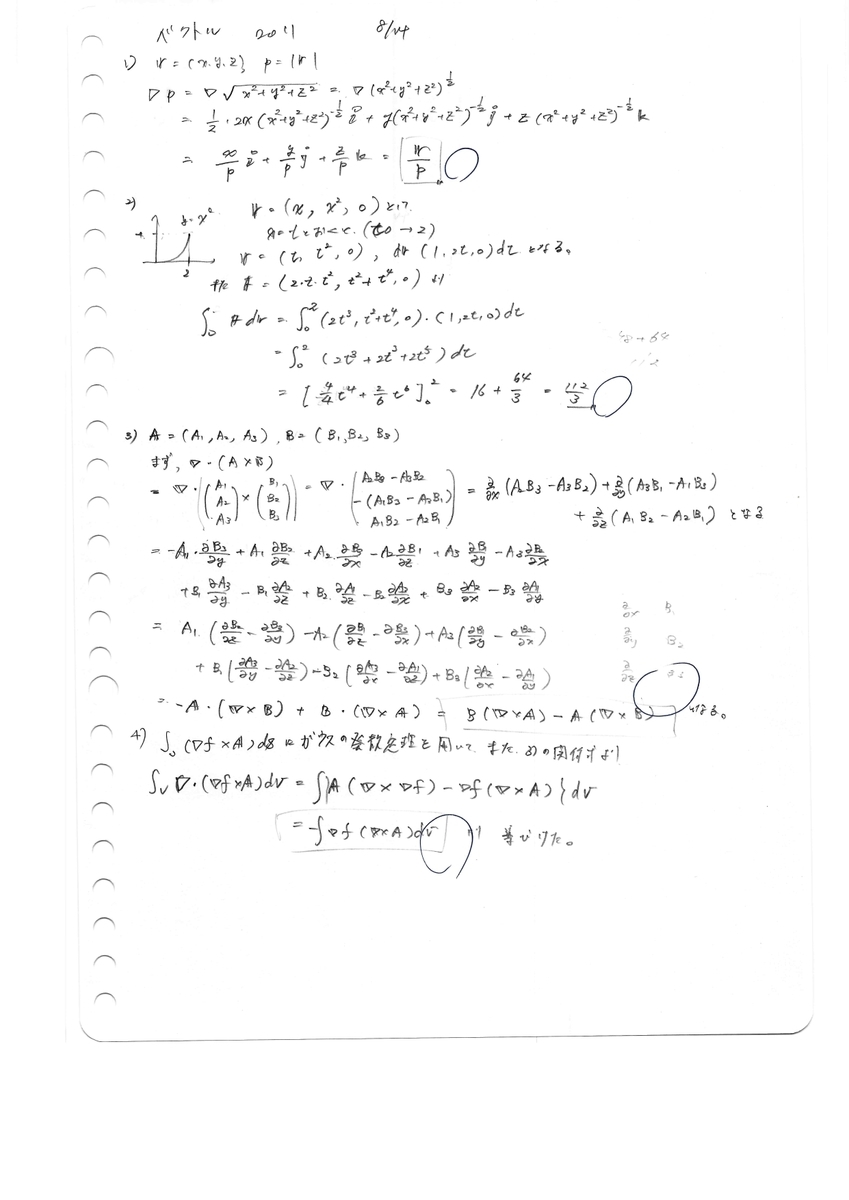 ベクトル 2011 8/14
1) r = (x, y, z) p = |r|
∇p = ∇√(x²+y²+z²) = ∇(x²+y²+z²)^(1/2)
= 1/2・2x(x²+y²+z²)^(-1/2) i + y(x²+y²+z²)^(-1/2) j + z(x²+y²+z²)^(-1/2) k
= x/p i + y/p j + z/p k = r/p
2) r = (x, x², 0) として
y=x² x=tとおくと (t:0→2)
4 2 r = (t, t², 0), dr (1, 2t, 0)dt となる。
また A = (2・t・t², t²+t⁴, 0) より
∫₀ A dr = ∫₀² (2t³, t²+t⁴, 0)・(1, 2t, 0)dt
= ∫₀² (2t³ + 2t³ + 2t⁵) dt
= [4/4 t⁴ + 2/6 t⁶]₀² = 16 + 64/3 = 112/3
3) A = (A₁, A₂, A₃), B = (B₁, B₂, B₃)
まず, ∇・(A×B)
= ∇・((A₁ A₂ A₃) × (B₁ B₂ B₃)) = ∇・(A₂B₃ − A₃B₂, −(A₁B₃ − A₃B₁), A₁B₂ − A₂B₁) = ∂/∂x (A₂B₃ − A₃B₂) + ∂/∂y (A₃B₁ − A₁B₃)
+ ∂/∂z (A₁B₂ − A₂B₁) となる
= −A₁・∂B₃/∂y + A₁ ∂B₂/∂z + A₂・∂B₃/∂x − A₂ ∂B₁/∂z + A₃ ∂B₁/∂y − A₃ ∂B₂/∂x
+ B₁ ∂A₃/∂y − B₁ ∂A₂/∂z + B₂ ∂A₁/∂z − B₂ ∂A₃/∂x + B₃ ∂A₂/∂x − B₃ ∂A₁/∂y
= A₁・(∂B₂/∂z − ∂B₃/∂y) − A₂(∂B₁/∂z − ∂B₃/∂x) + A₃(∂B₁/∂y − ∂B₂/∂x)
+ B₁(∂A₃/∂y − ∂A₂/∂z) − B₂(∂A₃/∂x − ∂A₁/∂z) + B₃(∂A₂/∂x − ∂A₁/∂y)
= −A・(∇×B) + B・(∇×A) = B(∇×A) − A(∇×B) となる。
4) ∫ (∇f×A)ds はガウスの発散定理を用いて また 3)の関係より
∫v ∇・(∇f×A)dv = ∫{A(∇×∇f) − ∇f(∇×A)}dv
= −∫∇f(∇×A)dv より 導びけた。